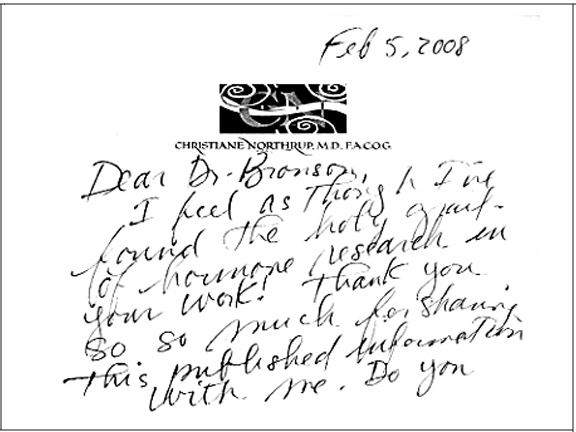 Feb 5, 2008
CHRISTIANE NORTHRUP, M.D. F.A.C.O.G.
Dear Dr. Bronson,
I feel as though I've
found the holy grail
of hormone research in
your work! Thank you
so so much for sharing
this published information
with me. Do you